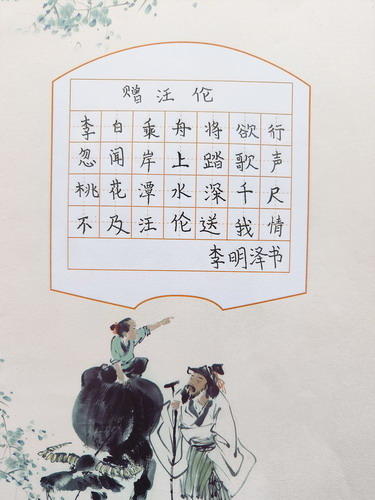 赠汪伦
李白乘舟将欲行
忽闻岸上踏歌声
桃花潭水深千尺
不及汪伦送我情
李明泽书